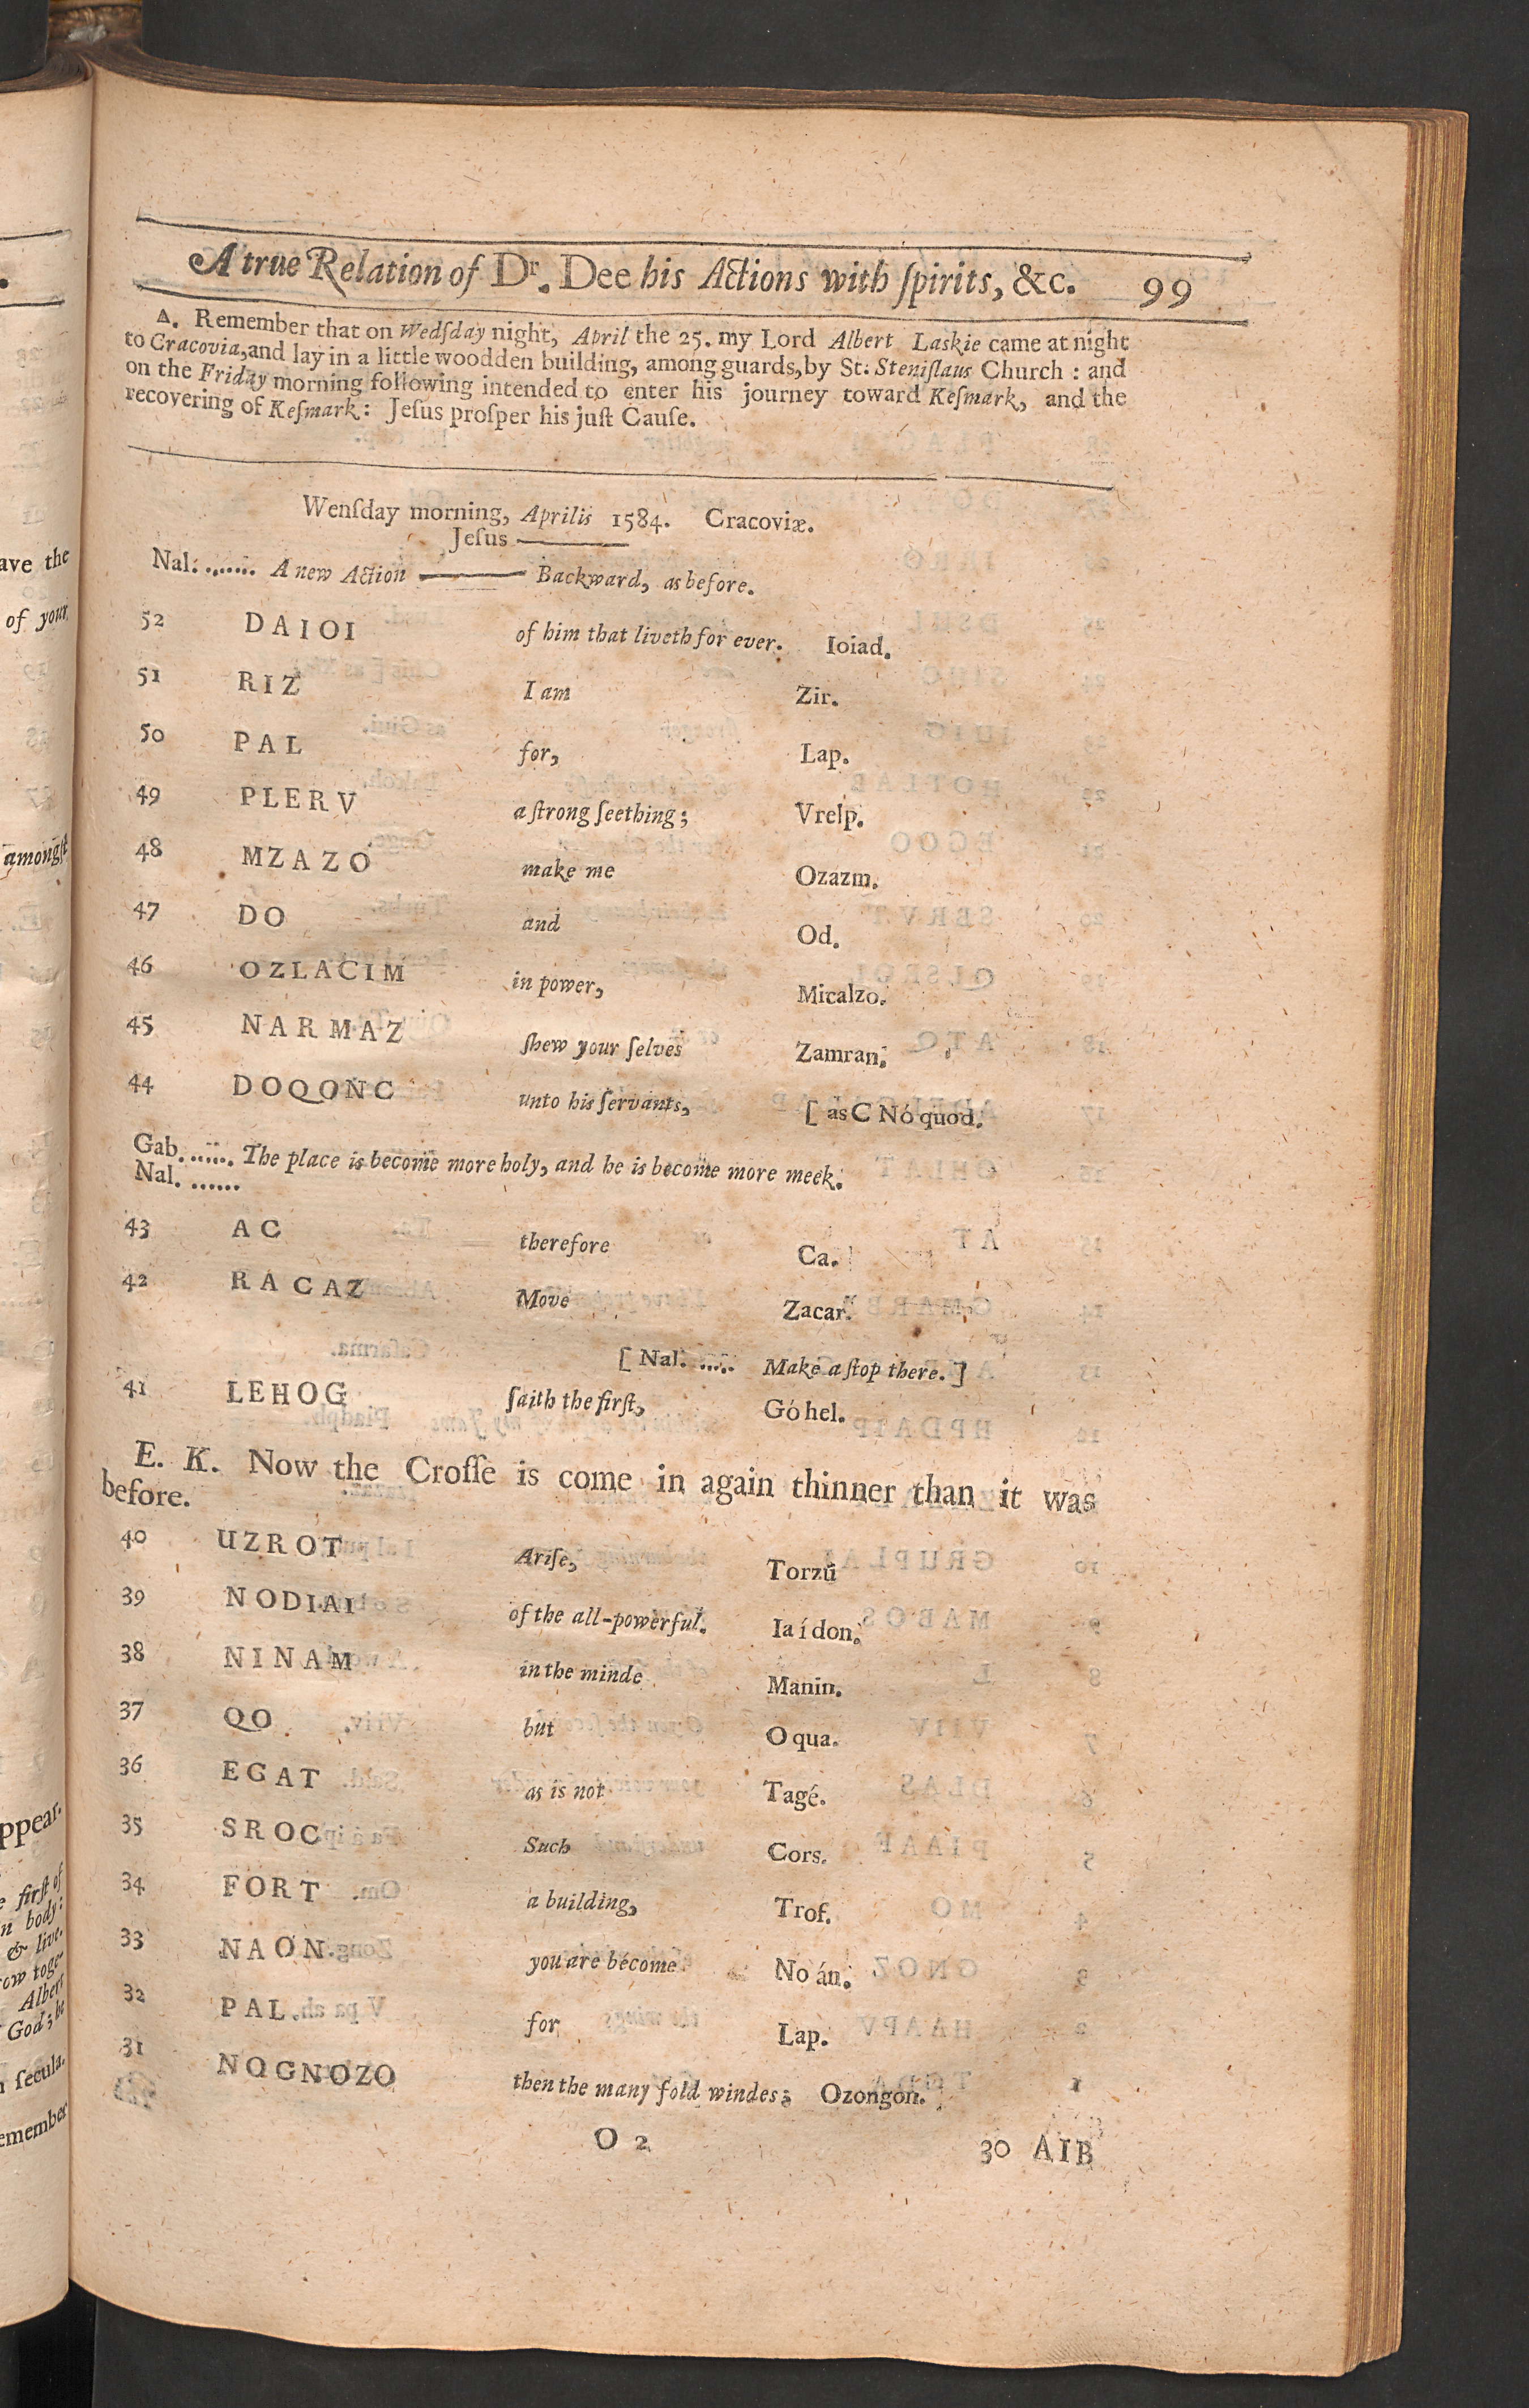 A true Relation of Dr. Dee his Actions with ſpirits, &c. 99
Δ. Remember that on Wedſday night, April the 25. my Lord Albert Laskie came at night
to Cracovia, and lay in a little woodden building, among guards, by St. Steniſlaus Church : and
on the Friday morning following intended to enter his journey toward Keſmark, and the
recovering of Keſmark: Jeſus proſper his juſt Cauſe.
Wenſday morning, Aprilis 1584. Cracoviæ.
Jeſus ———
Nal: ....... A new Action ——— Backward, as before.
52 DAIOI of him that liveth for ever. Ioiad.
51 RIZ I am Zir.
50 PAL for, Lap.
49 PLERV a ſtrong ſeething; Vrelp.
48 MZAZO make me Ozazm.
47 DO and Od.
46 OZLACIM in power, Micalzo.
45 NARMAZ ſhew your ſelves Zamran.
44 DOQONC unto his ſervants, [ as C Nó quod.
Gab. ...... The place is become more holy, and he is become more meek.
Nal. ......
43 AC therefore Ca.
42 RACAZ Move Zacar.
[ Nal. ..... Make a ſtop there. ]
41 LEHOG ſaith the firſt, Góhel.
E. K. Now the Croſſe is come in again thinner than it was
before.
40 UZROT Ariſe, Torzú
39 NODIAI of the all-powerful. Iaídon.
38 NINAM in the minde Manin.
37 QO but O qua.
36 EGAT as is not Tagé.
35 SROC Such Cors.
34 FORT a building, Trof.
33 NAON you are become No án.
32 PAL. for Lap.
31 NQGNOZO then the many fold windes; Ozongon.
O 2 30 AIB
ave the
of your
amongſt
ppear.
e firſt of
n body:
& live.
row toge-
Albert
God; be
ſecula.
emember